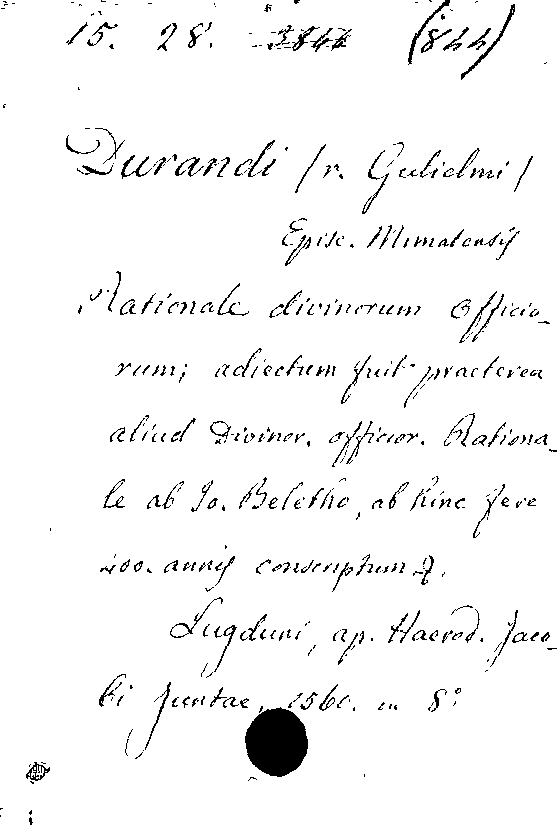 15. 28. 3844 (844)
Durandi /r. Gulielmi/
Episc. Mimatensis
Rationale divinorum officio-
rum; adiectum fuit praeterea
aliud Divinor. officior. Rationa-
le ab Jo. Beletho, ab hinc fere
400. annis conscriptum
Lugduni, ap. Haered. Jaco-
bi Juntae, 156 in 8°